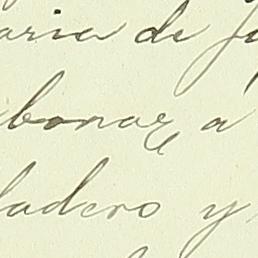 aria de
bonar a
ladero y